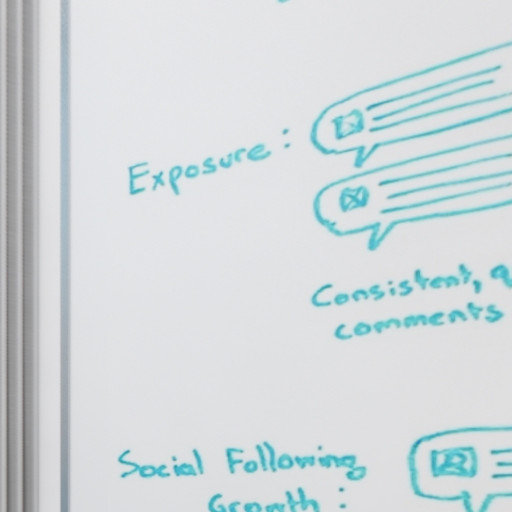 Exposure :
Consistent,
comments
Social Following
Growth :